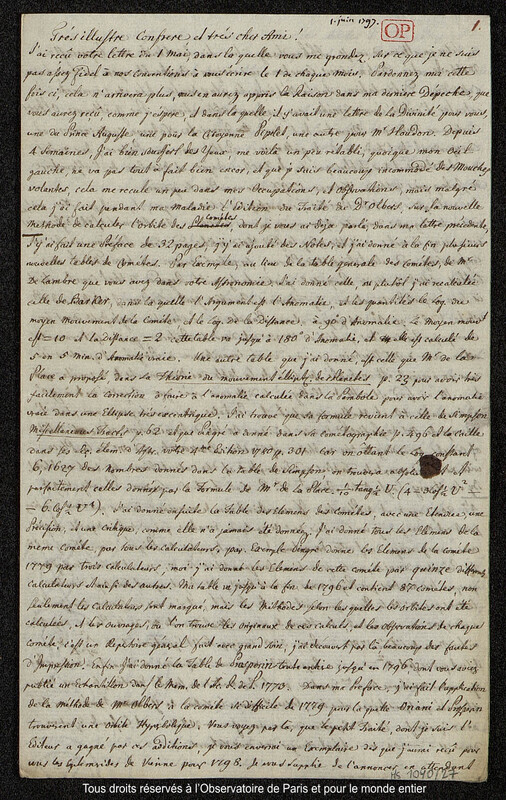 1. juin 1797.
OP
1.
Très illustre Confrere et très cher Ami!
J'ai reçu votre lettre du 1 Mai, dans la quelle vous me grondez, sur ce que je ne suis
pas assez fidel à nos conventions à vous ecrire le 1 de chaque Mois. Pardonnez moi cette
fois ci, cela n'arrivera plus, vous en aurez appris la Raison dans ma derniere Depeche, que
vous aurez reçu, comme j'espere, et dans la quelle il y avait une lettre de la Divinité pour vous,
une du Prince Auguste une pour la Citoyenne Depslet, une autre pour Mr Flaudon. Depuis
4 Semaines, j'ai bien souffert des Yeux, me voilà un peu retabli, quoique mon oeil
gauche, ne va pas tout à fait bien encor, et que je suis beaucoup incommodé des Mouches
volantes, cela me recule un peu dans mes Occupations, et observations, mais malgré
cela j'ai fait pendant ma maladie l'edition du Traité de Dr Olbers, sur la nouvelle
Methode de calculer l'orbite des Cometes, dont je vous ai deja parlé, dans ma lettre précedente,
J'y ai fait une Preface de 32 pages, j'y ai ajouté des Notes, et j'ai donné à la fin plusieurs
nouvelles tables de Cometes. Par Exemple, au lieu de la table generale des Cometes, de Mr
De Lambre que vous avez dans votre Astronomie j'ai donné celle, ou plutot j'ai recalculé
celle de Barker, dans la quelle l'Argument est l'Anomalie, et les quantités le log. du
moyen mouvement de la Comete et le log. de la Distance, à 90° d'Anomalie. Le moyen mouvt
est = 10 et la distance = 2 cette table va jusqu'à 180° d'Anomalie, et elle est calculé de
5 en 5 min. d'Anomalie vraie. Une autre table que j'ai donné, est celle que Mr de la
Place a proposé, dans sa Theorie du mouvement Ellipt. des Planetes p. 23 pour avoir très
facilement la correction à faire à l'anomalie calculée dans la Parabole pour avoir l'anomalie
vraie dans une Ellipse très excentrique. J'ai trouvé que sa formule revient à celle de Simpson
Miscellaneous Tracts p. 62 et que Pingré a donné dans sa Cometographie p. 496 et la Caille
dans ses Leç. Elem. d'Astr. votre 4me Edition 1780 p. 301 Car en otant le Log constant
6, 1629 des Nombres donnés dans la table de Simpson on trouvera
parfaitement celles donnés par la Formule de Mr de la Place. 1/10 tang ½ U. (4 – 3 Cos ½ U² –
– 6 Cos ½ U⁴). J'ai donné ensuite la Table des Elemens des Cometes, avec une Etendue, une
Précision, et une critique, comme elle n'a jamais eté donnée, j'ai donné tous les Elemens de la
meme Comete, par tous les calculateurs, par Exemple Pingré donne les Elemens de la comete
1779 par trois calculateurs, moi j'ai donné les Elemens de cette comete par quinze differens
Calculateurs et ainsi des autres. Ma table va jusqu'à la fin de 1796 et contient 87 cometes, non
seulement les Calculateurs sont marqués, mais les Methodes selon les quelles les orbites ont eté
calculées, et les ouvrages, où l'on trouve les originaux de ces calculs, et les observations de chaque
Comete, c'est un Repertoire general fait avec grand soin, j'ai decouvert par là beaucoup des fautes
d'Impression. Enfin j'ai donné la Table de Prosperin toute entiere jusqu'en 1796, dont vous aviez
publié un echantillon dans le Mem. de l'Ac. d. Sc. P. 1773. Dans ma Preface, j'ai fait l'application
de la Methode de Mr Olbers à la comete si difficile de 1779 pour la quelle Oriani et Prosperin
trouverent une orbite Hyperbolique. Vous voyez par là, que le petit Traité, dont je suis l'
Editeur a gagné par ces additions, je vous enverrai un Exemplaire dès que j'aurai reçu pour
vous les Ephemerides de Vienne pour 1798. Je vous supplie de l'annoncer en attendant
Ms 1090/27
Tous droits réservés à l'Observatoire de Paris et pour le monde entier